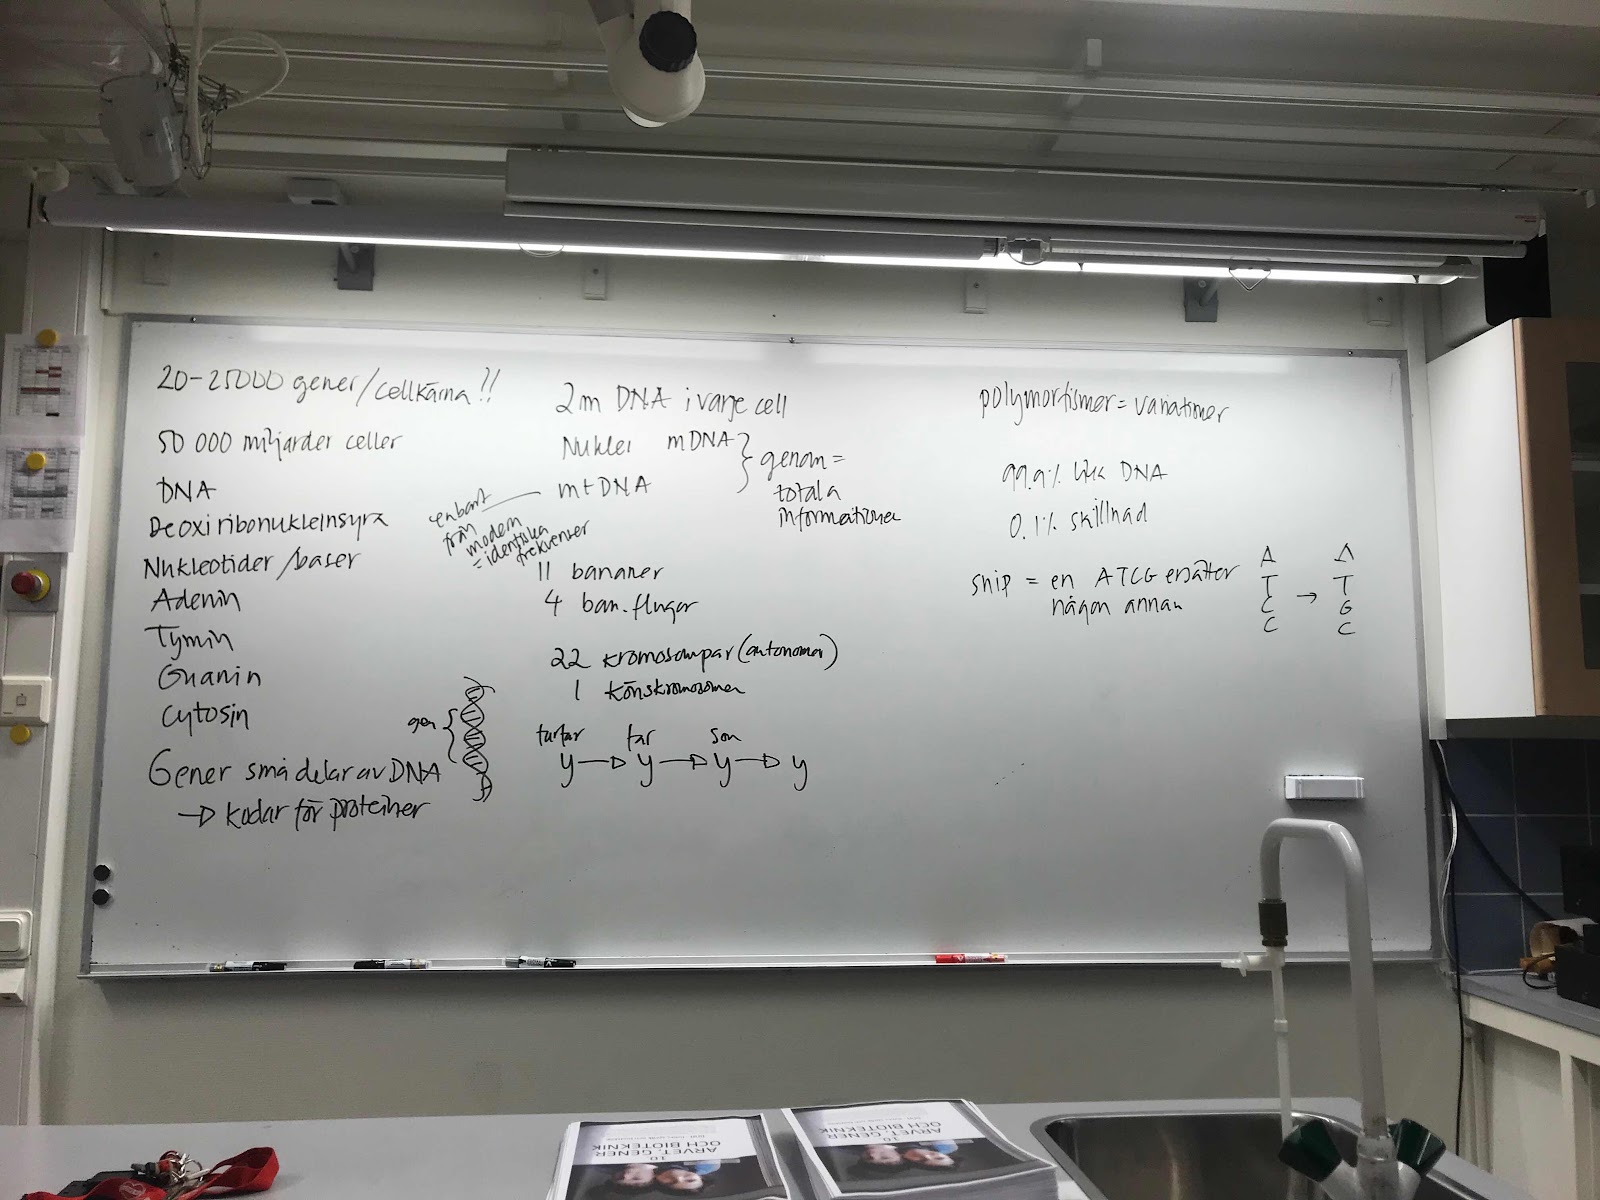 20-25000 gener/cellkärna!!
50 000 miljarder celler
DNA
Deoxiribonukleinsyra
Nukleotider/baser
Adenin
Tymin
Guanin
Cytosin
Gener små delar av DNA
→ kodar för proteiner
gen {
2m DNA i varje cell
Nuklei mDNA
mtDNA
} genom =
totala
informationen
enbart
från
modern
= identiska
frekvenser
11 bananer
4 ban.flugor
22 kromosompar (autonomer)
1 könskromosomer
farfar far son
y → y → y → y
polymorfismer = variationer
99.9% lika DNA
0.1% skillnad
snip = en ATCG ersätter
någon annan
A A
T T
C → G
C C
10
ARVET, GENER
OCH BIOTEKNIK
10
ARVET, GENER
OCH BIOTEKNIK